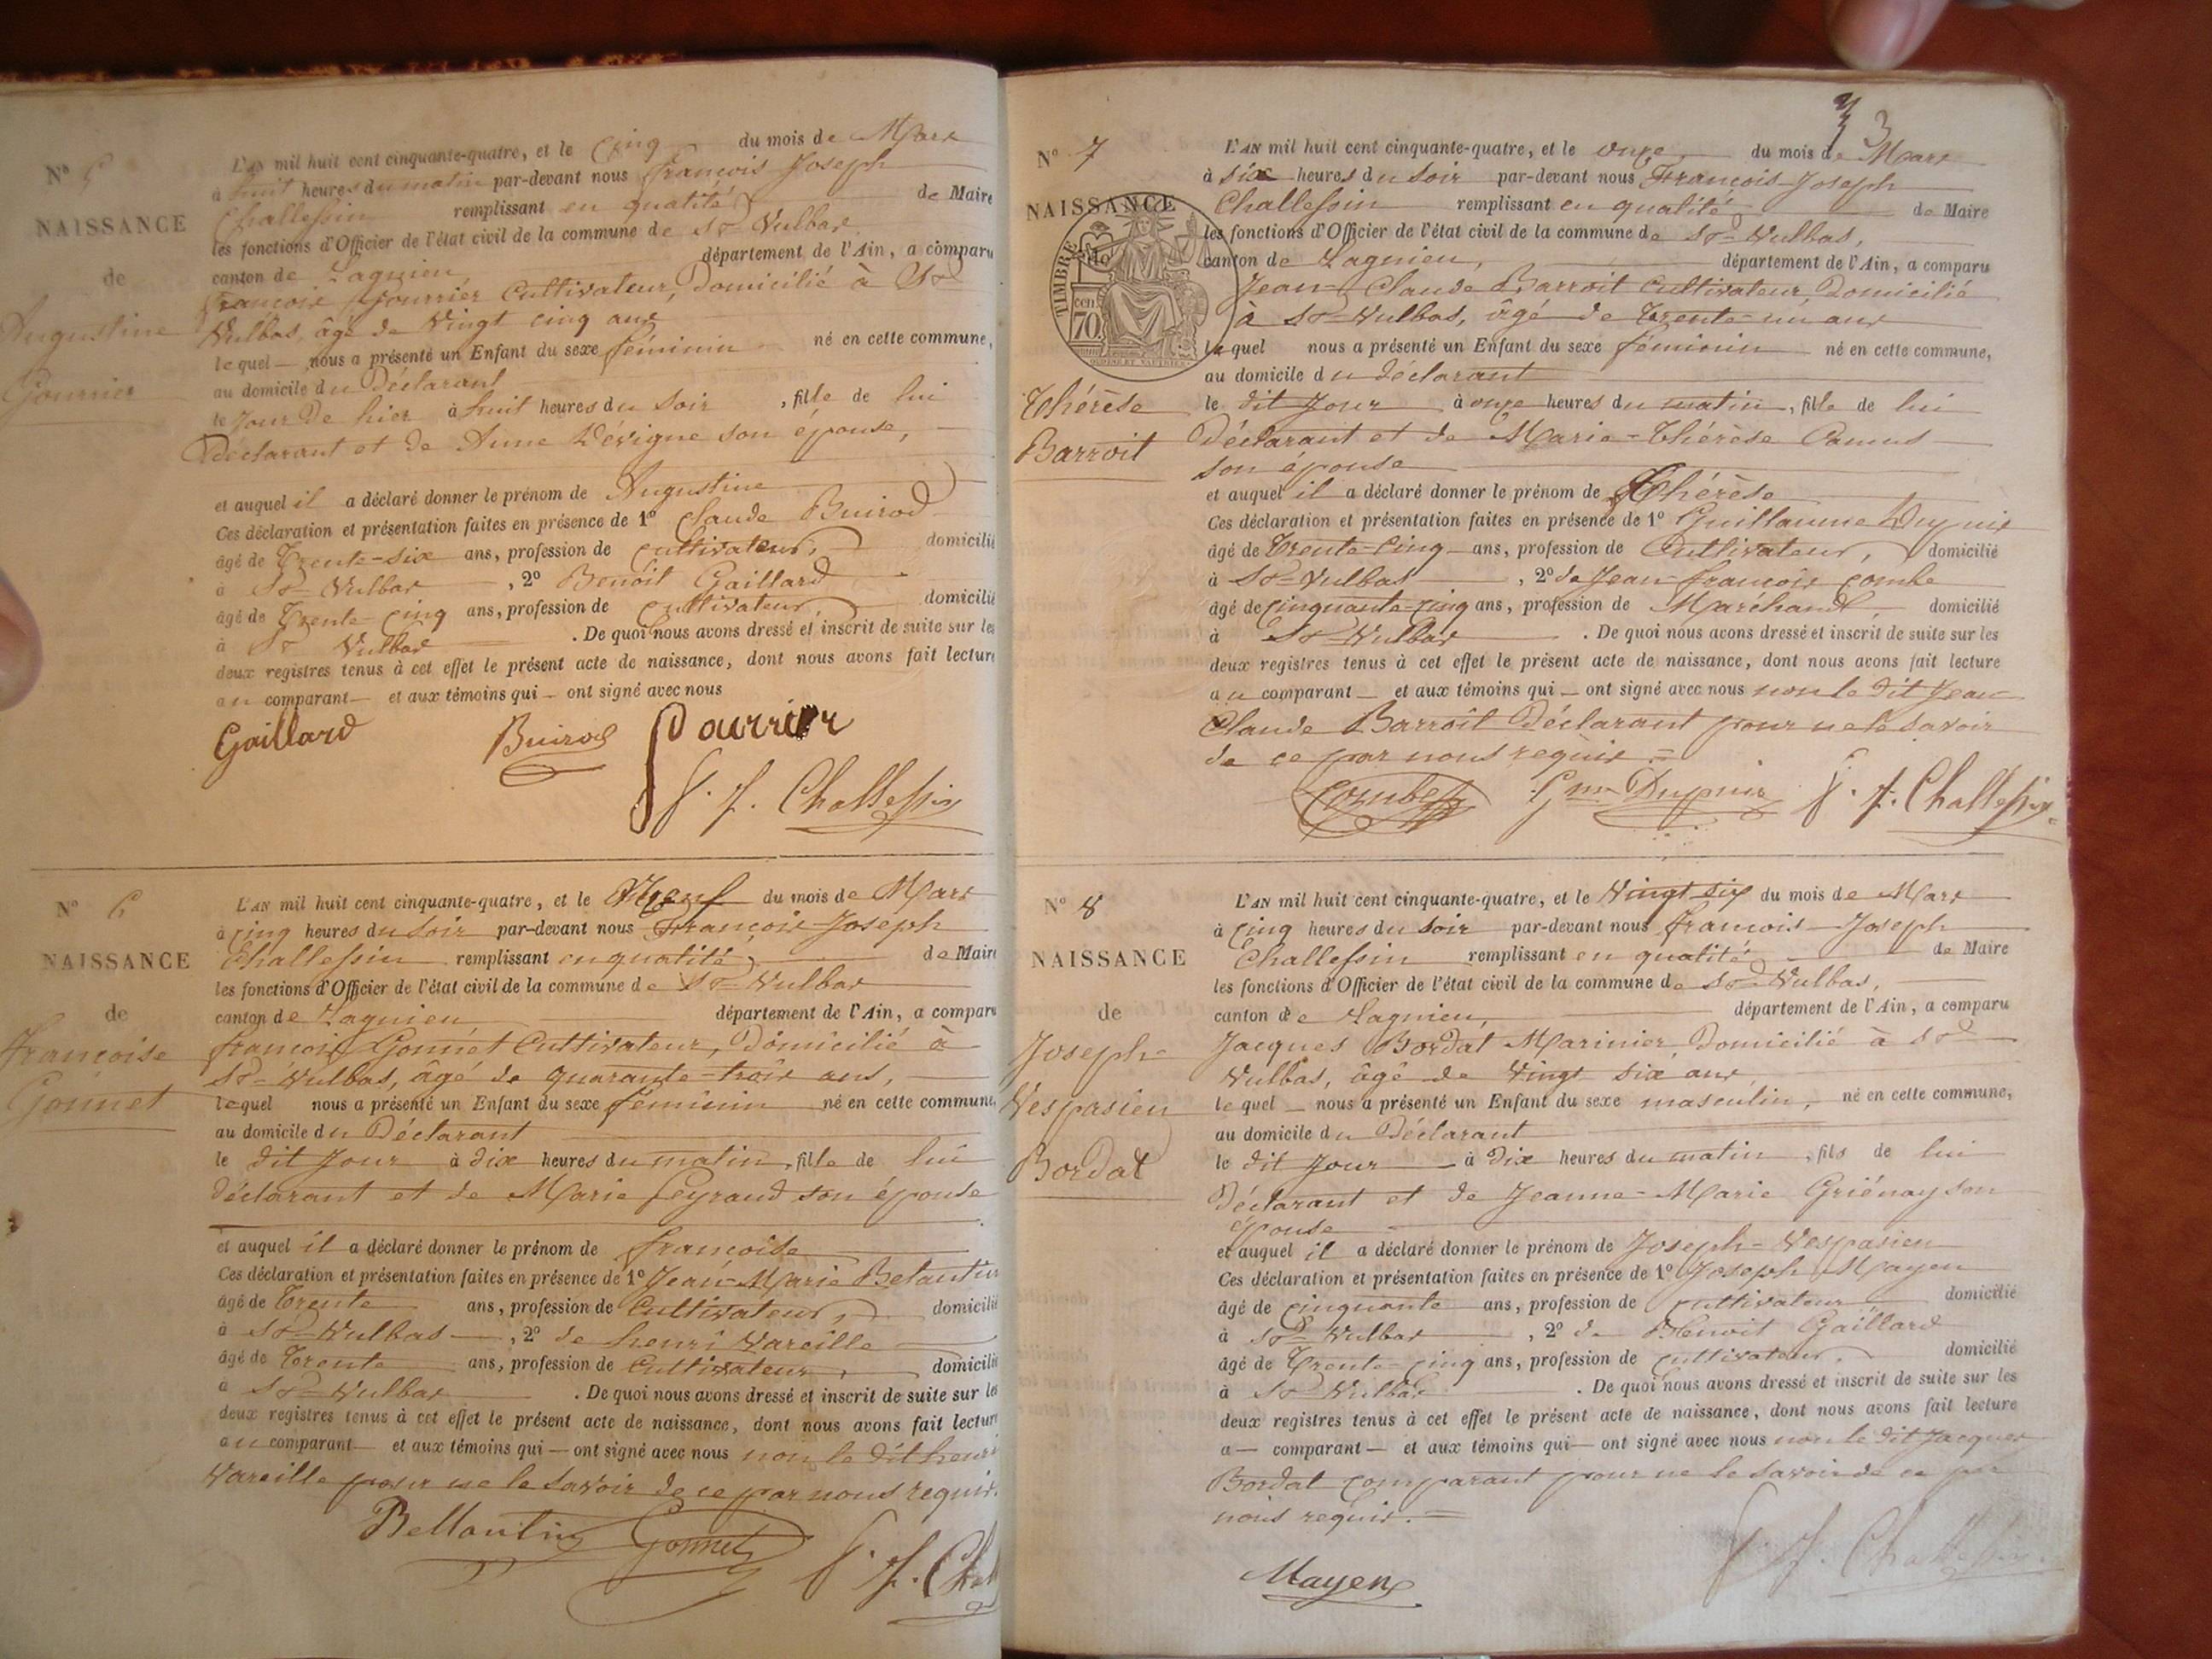 N° 5
NAISSANCE
de
Augustine
L'AN mil huit cent cinquante-quatre, et le cinq du mois de Mars
à huit heures du matin par-devant nous François Joseph
Challessin remplissant en qualité de Maire
les fonctions d'Officier de l'état civil de la commune de St Vulbas
canton de Lagnieu, département de l'Ain, a comparu
François cultivateur, domicilié à St
Vulbas, âgé de vingt cinq ans
lequel nous a présenté un Enfant du sexe féminin né en cette commune,
au domicile du Déclarant
le jour de hier à huit heures du soir, fille de lui
Déclarant et de Anne son épouse,
et auquel il a déclaré donner le prénom de Augustine
Ces déclaration et présentation faites en présence de 1° Claude Buirod
âgé de Trente-six ans, profession de cultivateur, domicilié
à St Vulbas, 2° Benoit Gaillard
âgé de Trente-cinq ans, profession de cultivateur, domicilié
à St Vulbas. De quoi nous avons dressé et inscrit de suite sur les
deux registres tenus à cet effet le présent acte de naissance, dont nous avons fait lecture
au comparant et aux témoins qui ont signé avec nous
Gaillard Buirod
F. J. Challessin
N° 6
NAISSANCE
de
Françoise
Gonnet
L'AN mil huit cent cinquante-quatre, et le Neuf du mois de Mars
à cinq heures du soir par-devant nous François-Joseph
Challessin remplissant en qualité de Maire
les fonctions d'Officier de l'état civil de la commune de St Vulbas
canton de Lagnieu, département de l'Ain, a comparu
françois Gonnet Cultivateur, Domicilié à
St Vulbas, âgé de quarante-trois ans,
lequel nous a présenté un Enfant du sexe féminin né en cette commune,
au domicile du Déclarant
le dit Jour à dix heures du matin, fille de lui
déclarant et de Marie Peyraud son épouse
et auquel il a déclaré donner le prénom de françoise
Ces déclaration et présentation faites en présence de 1° Jean-Marie
âgé de Trente ans, profession de Cultivateur, domicilié
à St Vulbas, 2° de henri Vareille
âgé de Trente ans, profession de Cultivateur, domicilié
à St Vulbas. De quoi nous avons dressé et inscrit de suite sur les
deux registres tenus à cet effet le présent acte de naissance, dont nous avons fait lecture
au comparant et aux témoins qui ont signé avec nous non le dit henri
Vareille pour ne le savoir de ce par nous requis.
Gonnet F. J. Chal
3
N° 7
NAISSANCE
TIMBRE
70
cen
Thérèse
Barroit
L'AN mil huit cent cinquante-quatre, et le onze du mois de Mars
à six heures du soir par-devant nous François-Joseph
Challessin remplissant en qualité de Maire
les fonctions d'Officier de l'état civil de la commune de St Vulbas,
canton de Lagnieu, département de l'Ain, a comparu
Jean-Claude Barroit cultivateur, Domicilié
à St Vulbas, âgé de Trente-un ans
lequel nous a présenté un Enfant du sexe féminin né en cette commune,
au domicile du déclarant
le dit Jour à onze heures du matin, fille de lui
Déclarant et de Marie-Thérèse Camus
son épouse
et auquel il a déclaré donner le prénom de Thérèse
Ces déclaration et présentation faites en présence de 1° Guillaume Dupuis
âgé de Trente-Cinq ans, profession de Cultivateur, domicilié
à St Vulbas, 2° de Jean-françois Combe
âgé de Cinquante-cinq ans, profession de Maréchand, domicilié
à St Vulbas. De quoi nous avons dressé et inscrit de suite sur les
deux registres tenus à cet effet le présent acte de naissance, dont nous avons fait lecture
au comparant et aux témoins qui ont signé avec nous non le dit Jean
Claude Barroit Déclarant pour ne le savoir
de ce par nous requis =
Combe Gme Dupuis F. J. Challessin
N° 8
NAISSANCE
de
Joseph-
Vespasien
Bordat
L'AN mil huit cent cinquante-quatre, et le Vingt six du mois de Mars
à Cinq heures du soir par-devant nous françois-Joseph
Challessin remplissant en qualité de Maire
les fonctions d'Officier de l'état civil de la commune de St Vulbas,
canton de Lagnieu, département de l'Ain, a comparu
Jacques Bordat Marinier, Domicilié à St
Vulbas, âgé de Vingt six ans
lequel nous a présenté un Enfant du sexe masculin, né en cette commune,
au domicile du Déclarant
le dit Jour à Dix heures du matin, fils de lui
Déclarant et de Jeanne-Marie Griénay son
épouse
et auquel il a déclaré donner le prénom de Joseph-Vespasien
Ces déclaration et présentation faites en présence de 1° Joseph Mayen
âgé de cinquante ans, profession de cultivateur domicilié
à St Vulbas, 2° de Benoit Gaillard
âgé de Trente-cinq ans, profession de cultivateur, domicilié
à St Vulbas. De quoi nous avons dressé et inscrit de suite sur les
deux registres tenus à cet effet le présent acte de naissance, dont nous avons fait lecture
a comparant et aux témoins qui ont signé avec nous non le dit Jacques
Bordat comparant pour ne le savoir de ce par
nous requis. =
Mayen F. J. Challessin